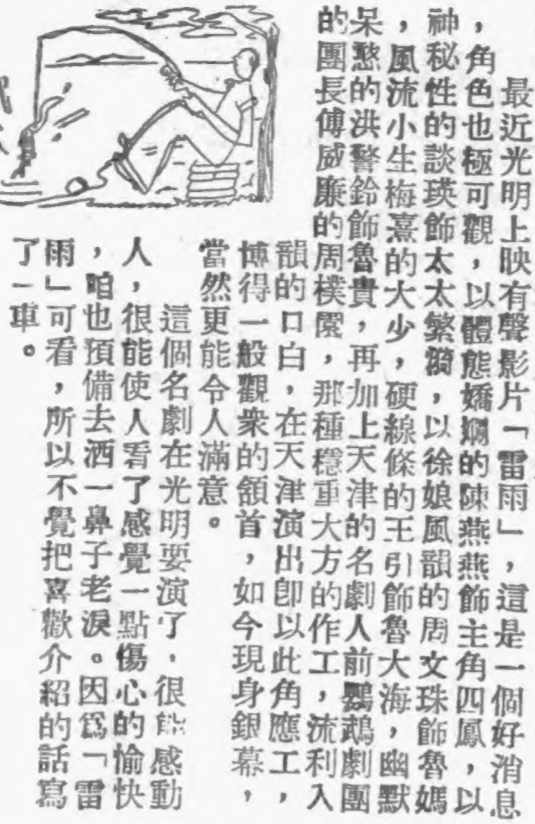 最近光明上映有聲影片「雷雨」，這是一個好消息
，角色也極可觀，以體態嬌婀的陳燕燕飾主角四鳳，以
神秘性的談瑛飾太太繁漪，以徐娘風韻的周文珠飾魯媽
，風流小生梅熹的大少，硬線條的王引飾魯大海，幽默
呆憨的洪警鈴飾魯貴，再加上天津的名劇人前鸚鵡劇團
的團長傅威廉的周樸園，那種穩重大方的作工，流利入
韻的口白，在天津演出卽以此角應工，
博得一般觀衆的頷首，如今現身銀幕，
當然更能令人滿意。
這個名劇在光明要演了，很能感動
人，很能使人看了感覺一點傷心的愉快
，咱也預備去洒一鼻子老淚。因爲「雷
雨」可看，所以不覺把喜歡介紹的話寫
了一車。